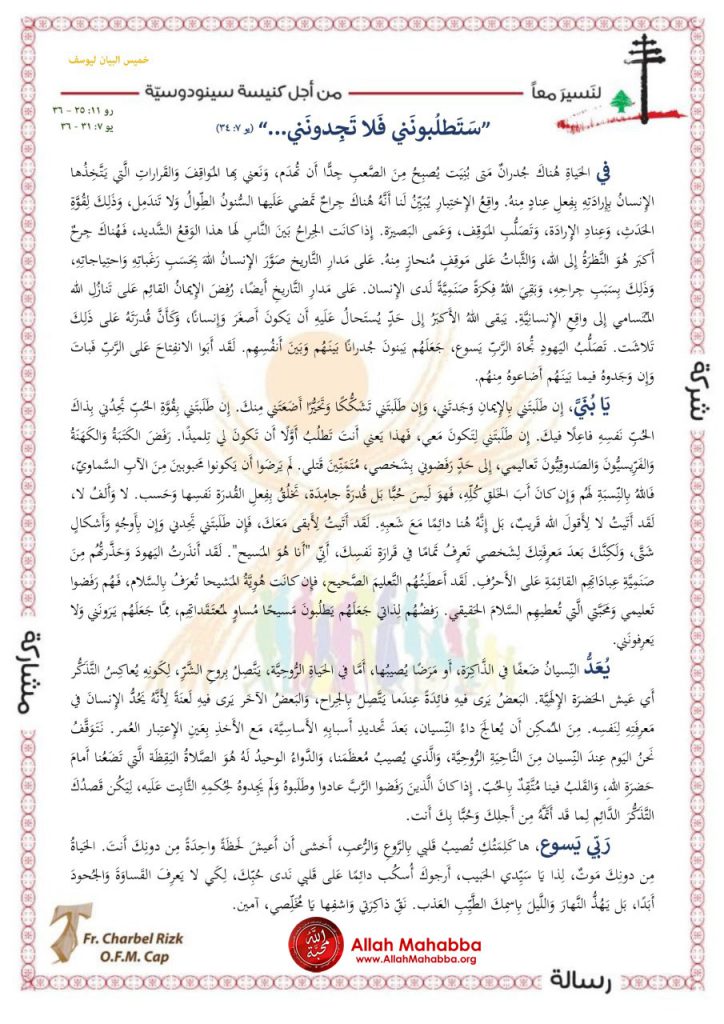 خميس البيان ليوسف
لنَسيرَ معاً
من أجل كنيسة سينودوسيّة
رو ١١: ٢٥ - ٣٦
يو ٧: ٣١ - ٣٦
”سَتَطلُبونَني فَلا تَجِدونَني...“ (يو ٧: ٣٤)
في الحَياةِ هُناكَ جُدرانٌ مَتى بُنِيَت يُصبِحُ مِنَ الصَّعبِ جِدًّا أَن تُهدَم، وَنَعني بِها المَوَاقِفَ وَالقَراراتِ الَّتي يَتَّخِذُها
الإِنسانُ بِإِرادَتِهِ بِفِعلِ عِنادٍ مِنهُ. واقِعُ الإِختِبارِ يُبَيِّنُ لَنا أَنَّهُ هُناكَ جِراحٌ تَمضي عَلَيها السُّنونُ الطِّوالُ وَلا تَندَمِل، وَذَلِكَ لِقُوَّةِ
الحَدَثِ، وَعِنادِ الإِرادَة، وَتَصَلُّبِ المَوقِف، وَعَمى البَصيرَة. إِذا كانَت الجِراحُ بَينَ النَّاسِ لَها هذا الوَقعُ الشَّديد، فَهُناكَ جِرحٌ
أَكبَر هُوَ النَّظرَةُ إِلى الله، وَالثَّباتُ عَلى مَوقِفٍ مُنحازٍ مِنهُ. عَلى مَدارِ التَّاريخِ صَوَّرَ الإِنسانُ اللهَ بِحَسَبِ رَغَباتِهِ وَاحتِياجاتِهِ،
وَذَلِكَ بِسَبَبِ جِراحِهِ، وَبَقِيَ اللهُ فِكرَةً صَنَمِيَّةً لَدى الإِنسان. عَلى مَدارِ التَّاريخِ أَيضًا، رُفِضَ الإِيمانُ القائِم عَلى تَنازُلِ الله
المُتَسامي إِلى واقِعِ الإِنسانِيَّةِ. يَبقى اللهُ الأَكبَرُ إِلى حَدٍّ يُستَحالُ عَلَيهِ أَن يَكونَ أَصغَرَ وَإِنسانًا، وَكَأَنَّ قُدرَتَهُ عَلى ذَلِكَ
تَلاشَت. تَصَلُّبُ اليَهودِ تُجاهَ الرَّبِّ يَسوع، جَعَلَهُم يَبنونَ جُدرانًا بَينَهُم وَبَينَ أَنفُسِهِم. لَقَد أَبَوا الانفِتاحَ عَلى الرَّبِّ فَباتَ
وَإِن وَجَدوهُ فيما بَينَهُم أَضاعوهُ مِنهُم.
يَا بُنَيَّ، إِن طَلَبتَني بِالإِيمانِ وَجَدتَني، وَإِن طَلَبتَني تَشَكُّكًا وَتَحَيُّرًا أَضَعتَني مِنكَ. إِن طَلَبتَني بِقُوَّةِ الحُبِّ تَجِدُني بِذاكَ
الحُبِّ نَفسِهِ فاعِلًا فيكَ. إِن طَلَبتَني لِتَكونَ مَعي، فَهذا يَعني أَنتَ تَطلُبُ أَوَّلًا أَن تَكونَ لي تِلميذًا. رَفَضَ الكَتَبَةُ وَالكَهَنَةُ
وَالفَرِّيسِيُّونَ وَالصَدوقِيُّونَ تَعاليمي، إِلى حَدِّ رَفضوني بِشَخصي، مُتَمَنِّينَ قَتلي. لَم يَرضَوا أَن يَكونوا مَحبوبينَ مِنَ الآبِ السَّماوِيّ،
فَاللهُ بِالنِّسبَةِ لَهُم وَإِن كانَ أَبَ الخَلقِ كُلِّهِ، فَهوَ لَيسَ حُبًّا بَل قُدرَة جامِدَة، تَخلُقُ بِفِعلِ القُدرَةِ نَفسِها وَحَسب. لا وَأَلفُ لا،
لَقَد أَتَيتُ لا لِأَقولَ الله قَريبٌ، بَل إِنَّهُ هُنا دائِمًا مَعَ شَعبِهِ. لَقَد أَتَيتُ لِأَبقى مَعَكَ، فَإِن طَلَبتَني تَجدني وَإِن بِأَوجُهٍ وَأَشكالٍ
شَتَّى، وَلَكِنَّكَ بَعدَ مَعرِفَتِكَ لِشَخصي تَعرِفُ تَمامًا في قَرارَةِ نَفسِكَ، أَنِّي "أَنا هُوَ المَسيح". لَقَد أَنذَرتُ اليَهودَ وَحَذَّرتُهُم مِن
صَنَمِيَّةِ عِباداتِهِم القائِمَةِ عَلى الأَحرُفِ. لَقَد أَعطَيتُهُم التَّعليمَ الصَّحيح، فَإِن كانَت هُوِيَّةُ المَشيحا تُعرَفُ بِالسَّلام، فَهُم رَفَضوا
تَعليمي وَمَحَبَّتي الَّتي تُعطيهِم السَّلامَ الحَقيقي. رَفضُهُم لِذاتي جَعَلَهُم يَطلُبونَ مَسيحًا مُساوٍ لمُعتَقَداتِهِم، مِمَّا جَعَلَهُم يَرَونَني وَلا
يَعرِفونَني.
يُعَدُّ النِّسيانُ ضَعفًا في الذَّاكِرَةِ، أَو مَرَضًا يُصيبُها، أَمَّا في الحَياةِ الرُّوحِيَّة، يَتَّصِلُ بِروحِ الشَّرِّ، لِكَونِهِ يُعاكِسُ التَّذَكُّر
أَي عَيش الحَضرَة الإِلَهِيَّة. البَعضُ يَرى فيهِ فائِدَةً عِندَما يَتَّصِلُ بِالجِراح، وَالبَعضُ الآخَر يَرى فيهِ لَعنَةً لِأَنَّهُ يَحُدُّ الإِنسانَ في
مَعرِفَتِهِ لِنَفسِه. مِنَ المُمكِنِ أَن يُعالَجَ داءُ النِّسيان، بَعدَ تَحديدِ أَسبابِهِ الأَساسِيَّة، مَع الأَخذِ بِعَينِ الإِعتِبار العُمر. نَتَوَقَّفُ
نَحنُ اليَوم عِندَ النِّسيان مِنَ النَّاحِيَةِ الرُّوحِيَّة، وَالَّذي يُصيبُ مُعظَمَنا، وَالدَّواءُ الوَحيدُ لَهُ هُوَ الصَّلاةُ اليَقِظَة الَّتي تَضَعُنا أَمامَ
حَضرَةِ اللهِ، وَالقَلبُ فينا مُتَّقِدٌ بِالحُبِّ. إِذا كانَ الَّذينَ رَفَضوا الرَّبَّ عادوا وَطَلَبوهُ وَلَم يَجِدوهُ لِحُكمِهِ الثَّابِت عَلَيه، لِيَكُن قَصدُكَ
التَّذَكُّرَ الدَّائِم لِما قَد أَتَمَّهُ مِن أَجلِكَ وَحُبًّا بِكَ أَنت.
رَبّي يَسوع، ها كَلِمَتُكِ تُصيبُ قَلبي بِالرَّوعِ وَالرُّعبِ، أَخشى أَن أَعيشَ لَحظَةً واحِدَةً مِن دونِكَ أَنتَ. الحَياةُ
مِن دونِكَ مَوتٌ، لِذا يَا سَيِّدي الحَبيب، أَرجوكَ أُسكُب دائِمًا عَلى قَلبي نَدى حُبِّكَ، لِكَي لا يَعرِفَ القَساوَةَ وَالجُحودَ
أَبَدًا، بَل يَهُذُّ النَّهارَ وَاللَّيلَ بِاسمِكَ الطَّيِّبِ العَذب. نَقِّ ذاكِرَتي وَاشفِها يَا مُخَلِّصي، آمين.
شركة
مشاركة
رسالة
Fr. Charbel Rizk
O.F.M. Cap
الله محبّة
Allah Mahabba
www.AllahMahabba.org